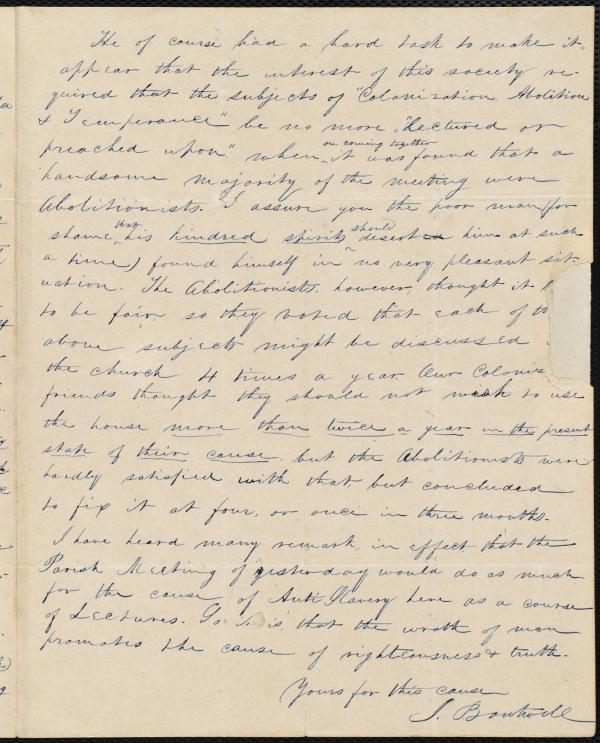 He of course had a hard task to make it
appear that the interest of this society re-
quired that the subjects of "Colonization, Abolition
& Temperance" be no more "Lectured or
on coming together
preached upon" when it was found that a
handsome majority of the meeting were
Abolitionists. I assure you the poor man (for
that should
shame, his kindred spirits desert him at such
a time) found himself in no very pleasant sit-
uation. The Abolitionists, however, thought it
to be fair so they voted that each of
above subjects might be discussed
the church 4 times a year. Our Colonis
friends thought they should not wish to use
the house more than twice a year in the present
state of their cause, but the Abolitionists were
hardly satisfied with that, but concluded
to fix it at four, or once in three months.
I have heard many remark, in effect that the
Parish Meeting of yesterday would do as much
for the cause of Anti Slavery here as a course
of Lectures. So it is that the wrath of man
promotes the cause of righteousness & truth.
Yours for this cause
S. Boutwell